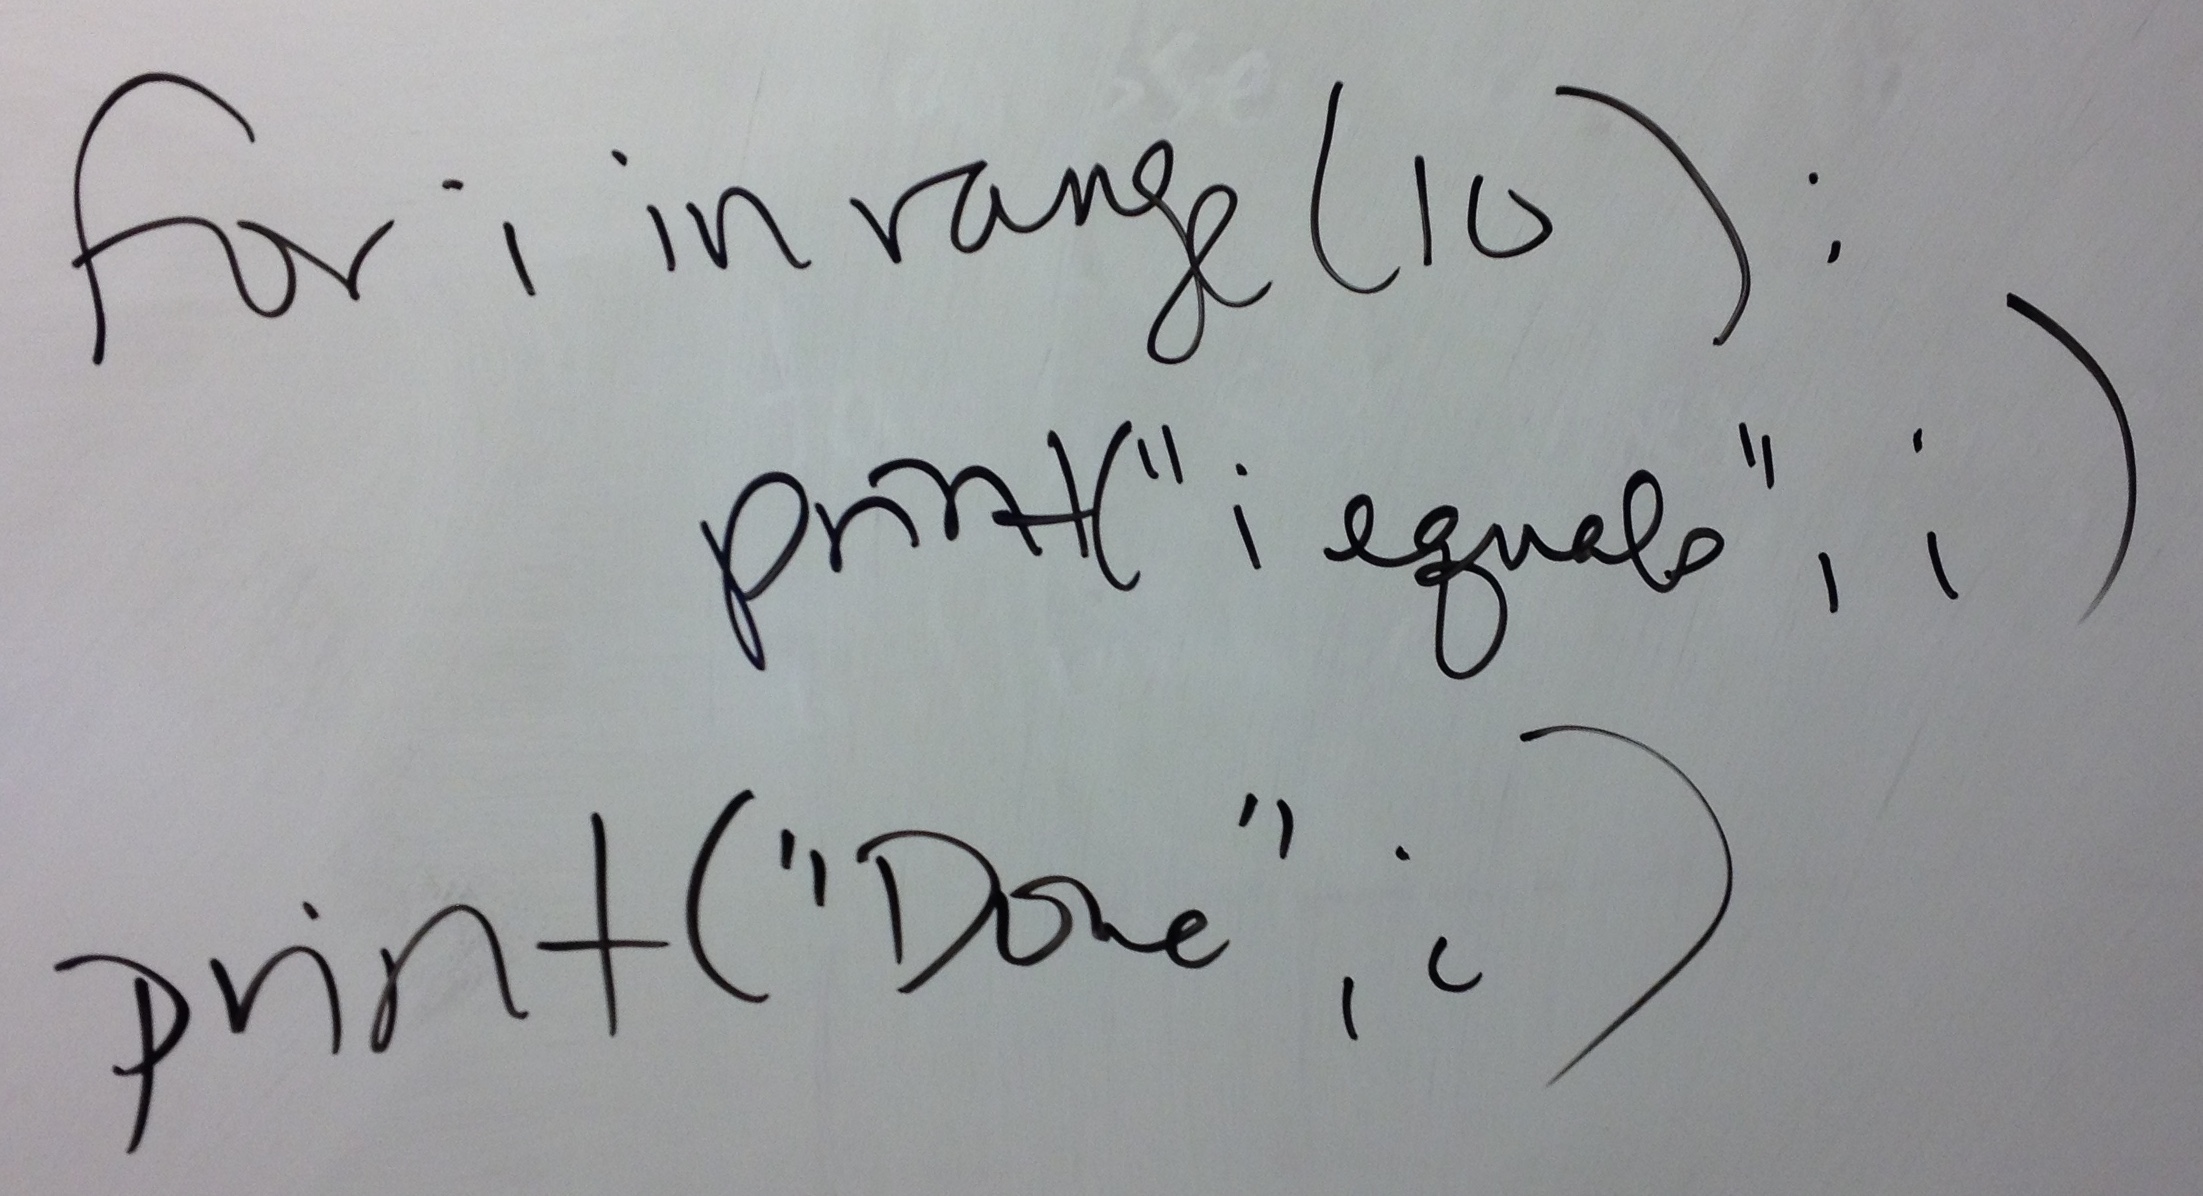 for i in range(10):
print("i equals", i)
print("Done", i)